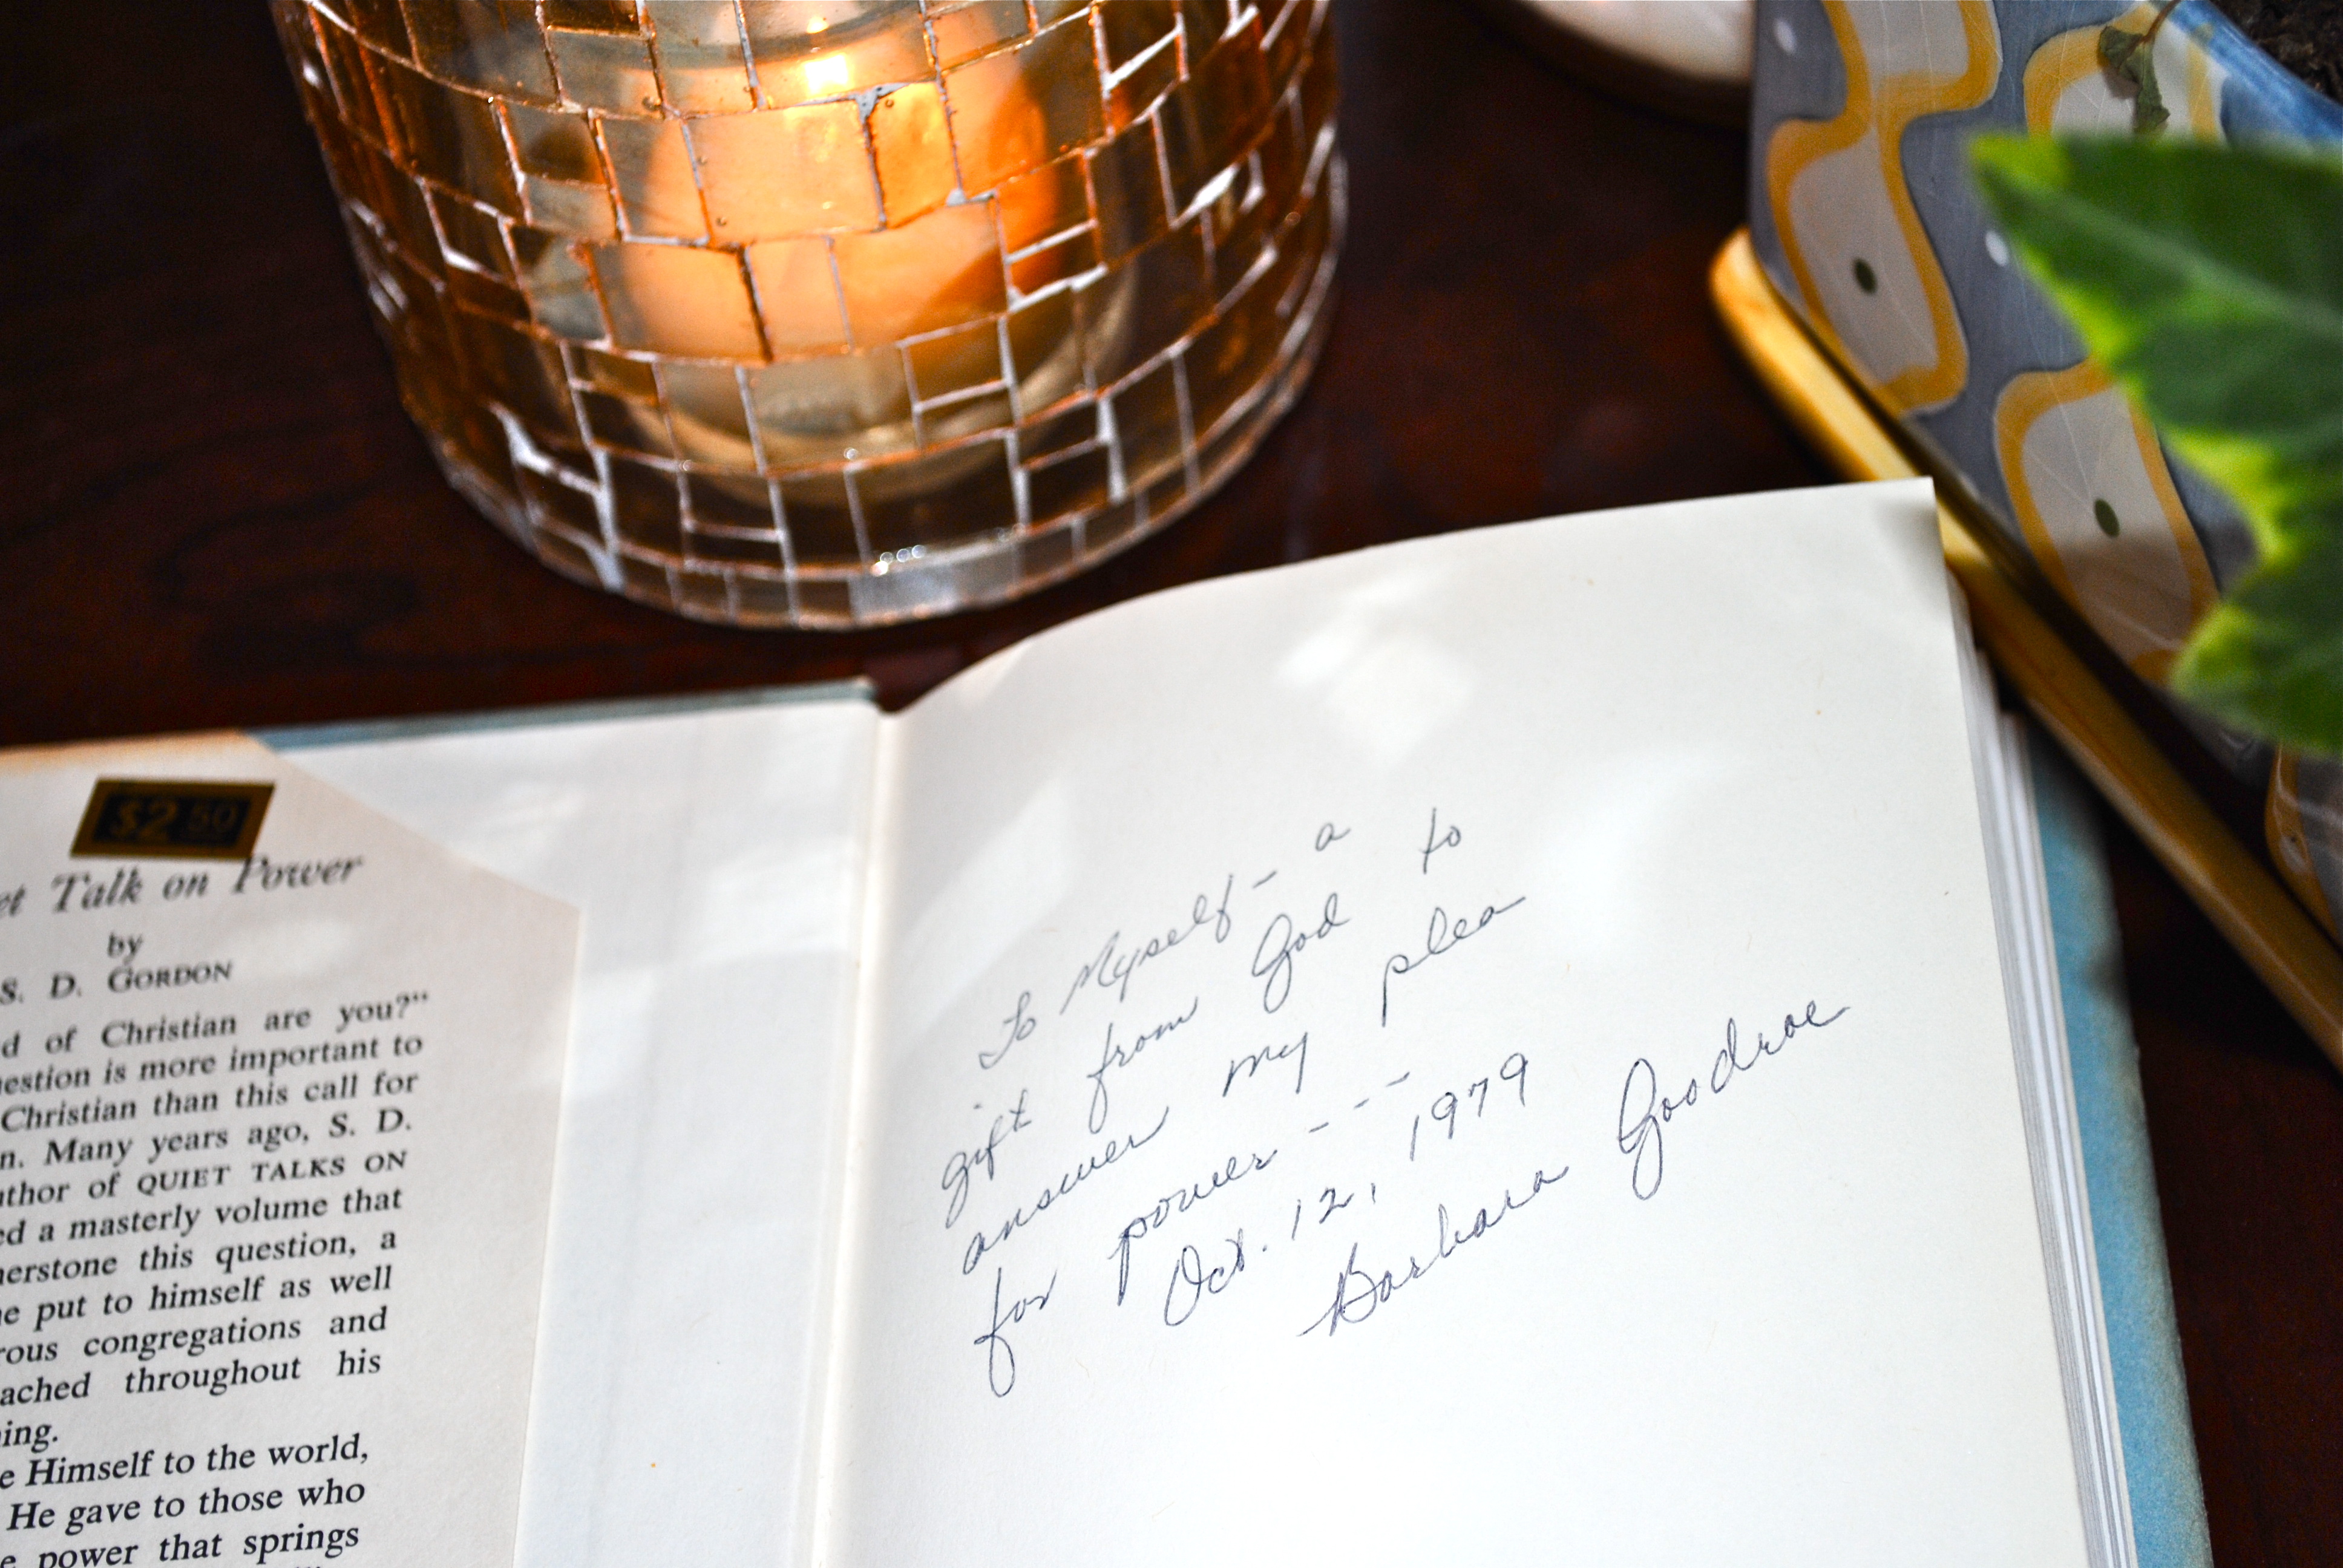 $2.50
et Talk on Power
by
S. D. GORDON
d of Christian are you?"
estion is more important to
Christian than this call for
n. Many years ago, S. D.
thor of QUIET TALKS ON
ed a masterly volume that
nerstone this question, a
e put to himself as well
rous congregations and
ached throughout his
ing.
e Himself to the world,
He gave to those who
e power that springs
To Myself - a
gift from God to
answer my plea
for power - - -
Oct. 12, 1979
Barbara Goodroe